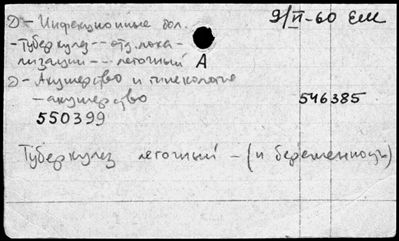 Д - Инфекционные бол.
9/II-60 ЕМ
- Туберкулез -- отд. лока-
лизации -- легочный А
Д - Акушерство и гинекология
- акушерство
546385
550399
Туберкулез легочный - (и беременность)